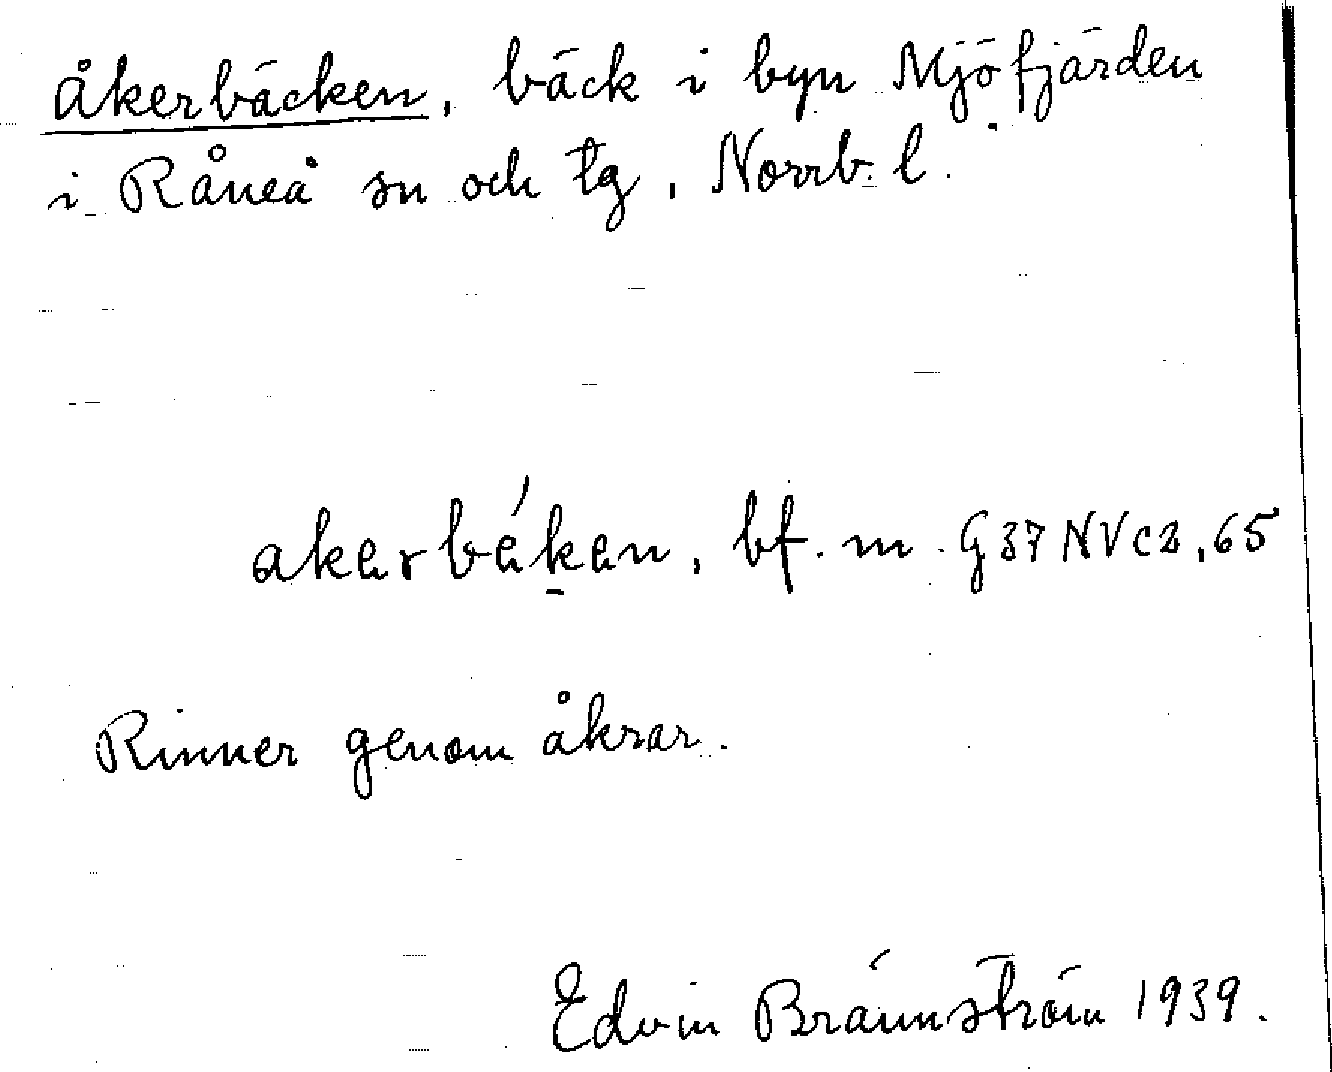 Åkerbäcken, bäck i byn Mjöfjärden
i Råneå sn och tg, Norrb. l.
akerbéken, bf. m. G37NVc3,65
Rinner genom åkrar.
Edvin Brännström 1939.